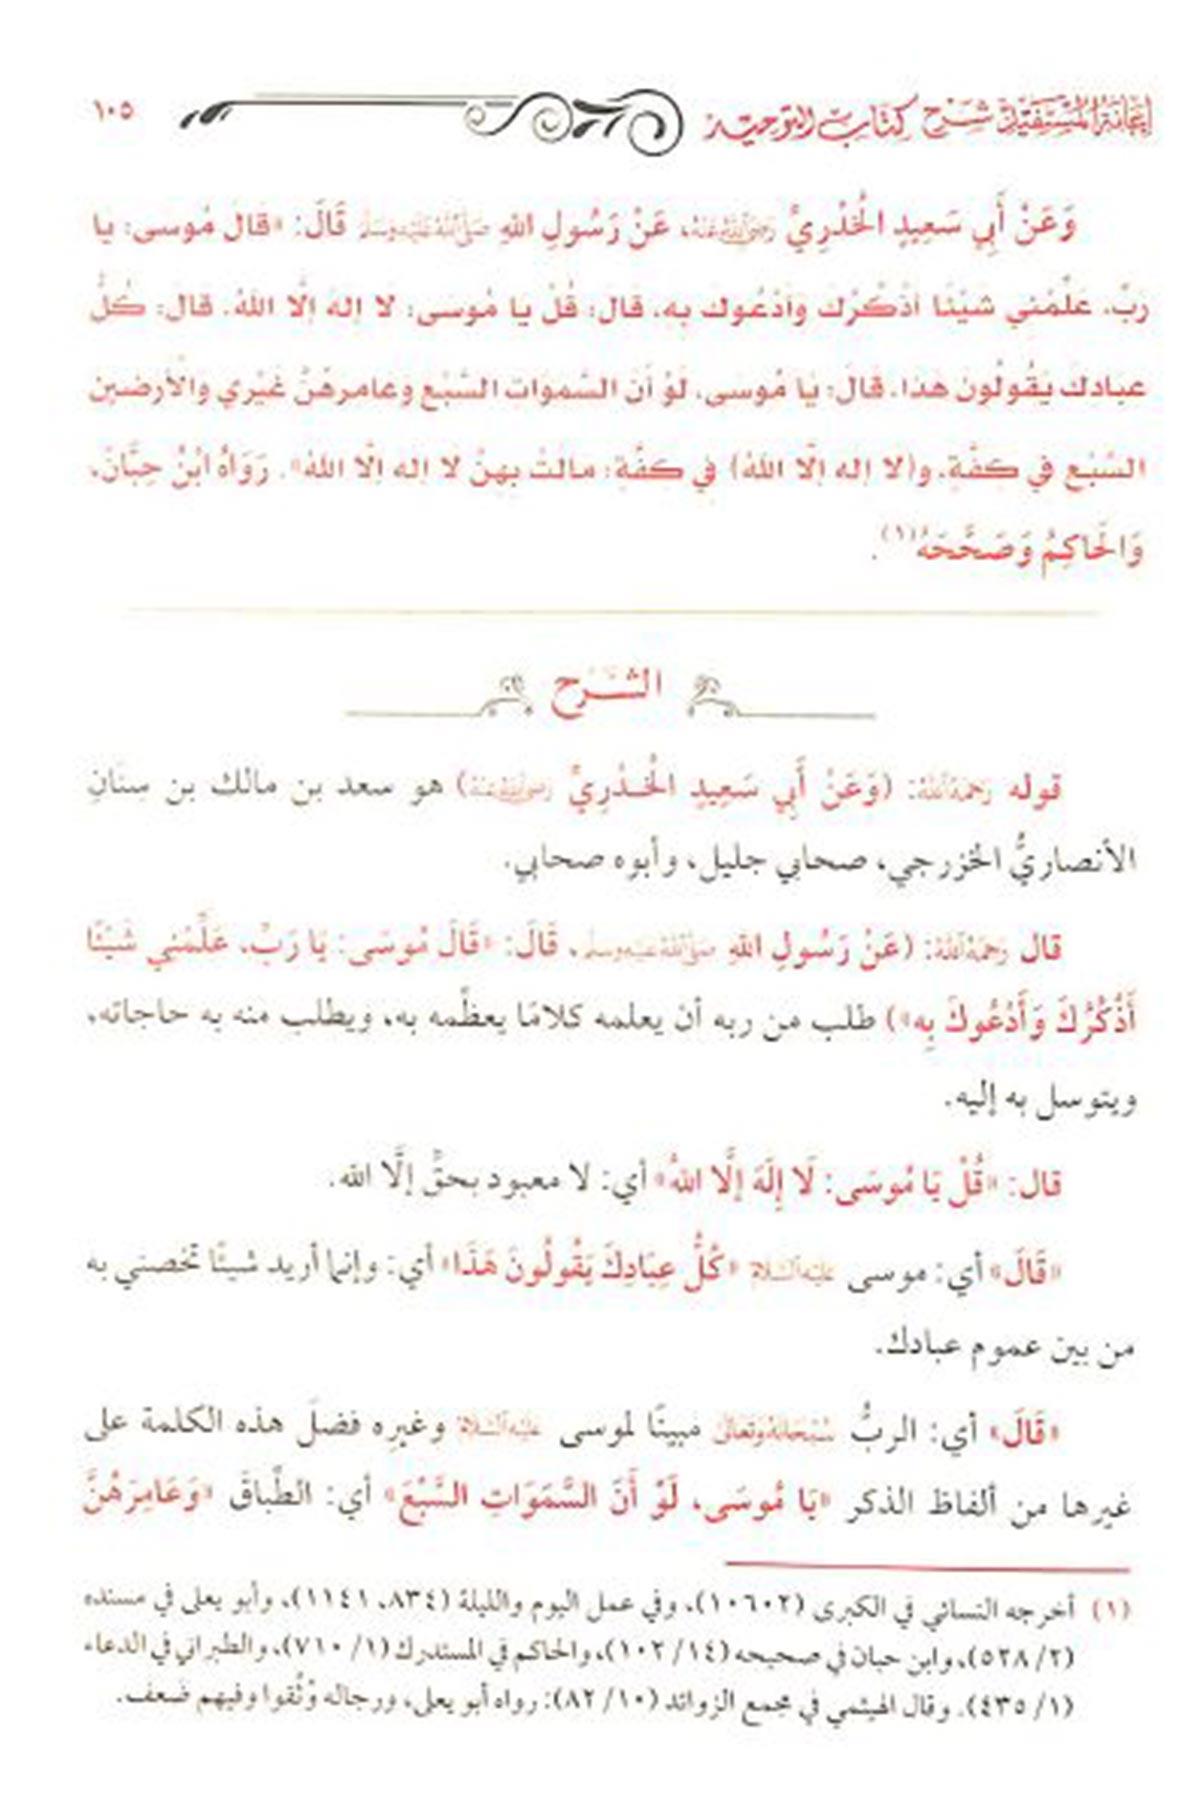 إعانة المستفيد شرح كتاب التوحيد ١٠٥
وَعَنْ أَبِي سَعِيدٍ الْخُدْرِيِّ رَضِيَ اللَّهُ عَنْهُ، عَنْ رَسُولِ اللهِ صَلَّى اللَّهُ عَلَيْهِ وَسَلَّمَ قَالَ: «قَالَ مُوسَى: يَا
رَبِّ، عَلِّمْنِي شَيْئًا أَذْكُرُكَ وَأَدْعُوكَ بِهِ، قَالَ: قُلْ يَا مُوسَى: لَا إِلَهَ إِلَّا اللهُ. قَالَ: كُلُّ
عِبَادِكَ يَقُولُونَ هَذَا. قَالَ: يَا مُوسَى، لَوْ أَنَّ السَّمَوَاتِ السَّبْعَ وَعَامِرَهُنَّ غَيْرِي وَالْأَرَضِينَ
السَّبْعَ فِي كِفَّةٍ، و(لَا إِلَهَ إِلَّا اللهُ) فِي كِفَّةٍ: مَالَتْ بِهِنَّ لَا إِلَهَ إِلَّا اللهُ». رَوَاهُ ابْنُ حِبَّانَ،
وَالْحَاكِمُ وَصَحَّحَهُ(١).
الشرح
قوله رَحِمَهُ اللَّهُ: (وَعَنْ أَبِي سَعِيدٍ الْخُدْرِيِّ رَضِيَ اللَّهُ عَنْهُ) هو سعد بن مالك بن سِنَانِ
الأنصاريُّ الخزرجي، صحابي جليل، وأبوه صحابي.
قال رَحِمَهُ اللَّهُ: (عَنْ رَسُولِ اللهِ صَلَّى اللَّهُ عَلَيْهِ وَسَلَّمَ، قَالَ: «قَالَ مُوسَى: يَا رَبِّ، عَلِّمْنِي شَيْئًا
أَذْكُرُكَ وَأَدْعُوكَ بِهِ») طلب من ربه أن يعلمه كلامًا يعظِّمه به، ويطلب منه به حاجاته،
ويتوسل به إليه.
قال: «قُلْ يَا مُوسَى: لَا إِلَهَ إِلَّا اللهُ» أي: لا معبود بحقٍّ إلَّا الله.
«قَالَ» أي: موسى عَلَيْهِ السَّلَامُ «كُلُّ عِبَادِكَ يَقُولُونَ هَذَا» أي: وإنما أريد شيئًا تخصني به
من بين عموم عبادك.
«قَالَ» أي: الربُّ سُبْحَانَهُ وَتَعَالَى مبينًا لموسى عَلَيْهِ السَّلَامُ وغيرِه فضلَ هذه الكلمة على
غيرها من ألفاظ الذكر «يَا مُوسَى، لَوْ أَنَّ السَّمَوَاتِ السَّبْعَ» أي: الطِّباقَ «وَعَامِرَهُنَّ
(١) أخرجه النسائي في الكبرى (١٠٦٠٢)، وفي عمل اليوم والليلة (٨٣٤، ١١٤١)، وأبو يعلى في مسنده
(٢/ ٥٢٨)، وابن حبان في صحيحه (١٤/ ١٠٢)، والحاكم في المستدرك (١/ ٧١٠)، والطبراني في الدعاء
(١/ ٤٣٥). وقال الهيثمي في مجمع الزوائد (١٠/ ٨٢): رواه أبو يعلى، ورجاله وُثِّقوا وفيهم ضعف.